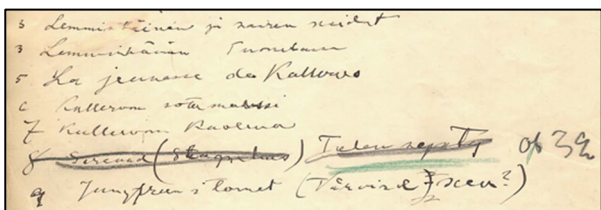 3 Lemminkäinen ja saaren neidot
3 Lemminkäinen Tuonelassa
5 La jeunesse de Kullervo
6 Kullervon sotamarssi
7 Kullervon Kuolema
8 Serenad (Stagnelius) Tulen synty op 32
9 Jungfrun i tornet